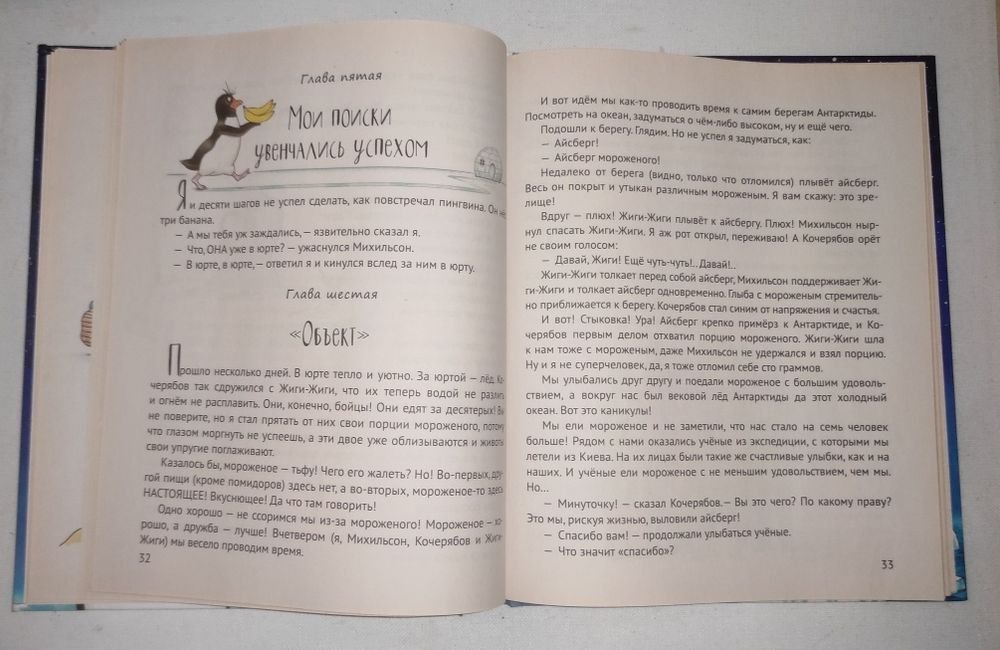 Глава пятая
Мои поиски
увенчались успехом
Я и десяти шагов не успел сделать, как повстречал пингвина. Он нёс
три банана.
— А мы тебя уж заждались, — язвительно сказал я.
— Что, ОНА уже в юрте? — ужаснулся Михильсон.
— В юрте, в юрте, — ответил я и кинулся вслед за ним в юрту.
Глава шестая
«Объект»
Прошло несколько дней. В юрте тепло и уютно. За юртой — лёд. Ко-
черябов так сдружился с Жиги-Жиги, что их теперь водой не разлить
и огнём не расплавить. Они, конечно, бойцы! Они едят за десятерых! Вы
не поверите, но я стал прятать от них свои порции мороженого, потому
что глазом моргнуть не успеешь, а эти двое уже облизываются и животы
свои упругие поглаживают.
Казалось бы, мороженое — тьфу! Чего его жалеть? Но! Во-первых, дру-
гой пищи (кроме помидоров) здесь нет, а во-вторых, мороженое-то здесь
НАСТОЯЩЕЕ! Вкуснющее! Да что там говорить!
Одно хорошо — не ссоримся мы из-за мороженого! Мороженое — хо-
рошо, а дружба — лучше! Вчетвером (я, Михильсон, Кочерябов и Жиги-
Жиги) мы весело проводим время.
32
И вот идём мы как-то проводить время к самим берегам Антарктиды.
Посмотреть на океан, задуматься о чём-либо высоком, ну и ещё чего.
Подошли к берегу. Глядим. Но не успел я задуматься, как:
— Айсберг!
— Айсберг мороженого!
Недалеко от берега (видно, только что отломился) плывёт айсберг.
Весь он покрыт и утыкан различным мороженым. Я вам скажу: это зре-
лище!
Вдруг — плюх! Жиги-Жиги плывёт к айсбергу. Плюх! Михильсон ныр-
нул спасать Жиги-Жиги. Я аж рот открыл, переживаю! А Кочерябов орёт
не своим голосом:
— Давай, Жиги! Ещё чуть-чуть!.. Давай!..
Жиги-Жиги толкает перед собой айсберг, Михильсон поддерживает Жи-
ги-Жиги и толкает айсберг одновременно. Глыба с мороженым стремитель-
но приближается к берегу. Кочерябов стал синим от напряжения и счастья.
И вот! Стыковка! Ура! Айсберг крепко примёрз к Антарктиде, и Ко-
черябов первым делом отхватил порцию мороженого. Жиги-Жиги шла
к нам тоже с мороженым, даже Михильсон не удержался и взял порцию.
Ну и я не суперчеловек, да, я тоже отломил себе сто граммов.
Мы улыбались друг другу и поедали мороженое с большим удоволь-
ствием, а вокруг нас был вековой лёд Антарктиды да этот холодный
океан. Вот это каникулы!
Мы ели мороженое и не заметили, что нас стало на семь человек
больше! Рядом с нами оказались учёные из экспедиции, с которыми мы
летели из Киева. На их лицах были такие же счастливые улыбки, как и на
наших. И учёные ели мороженое с не меньшим удовольствием, чем мы.
Но...
— Минуточку! — сказал Кочерябов. — Вы это чего? По какому праву?
Это мы, рискуя жизнью, выловили айсберг!
— Спасибо вам! — продолжали улыбаться учёные.
— Что значит «спасибо»?
33